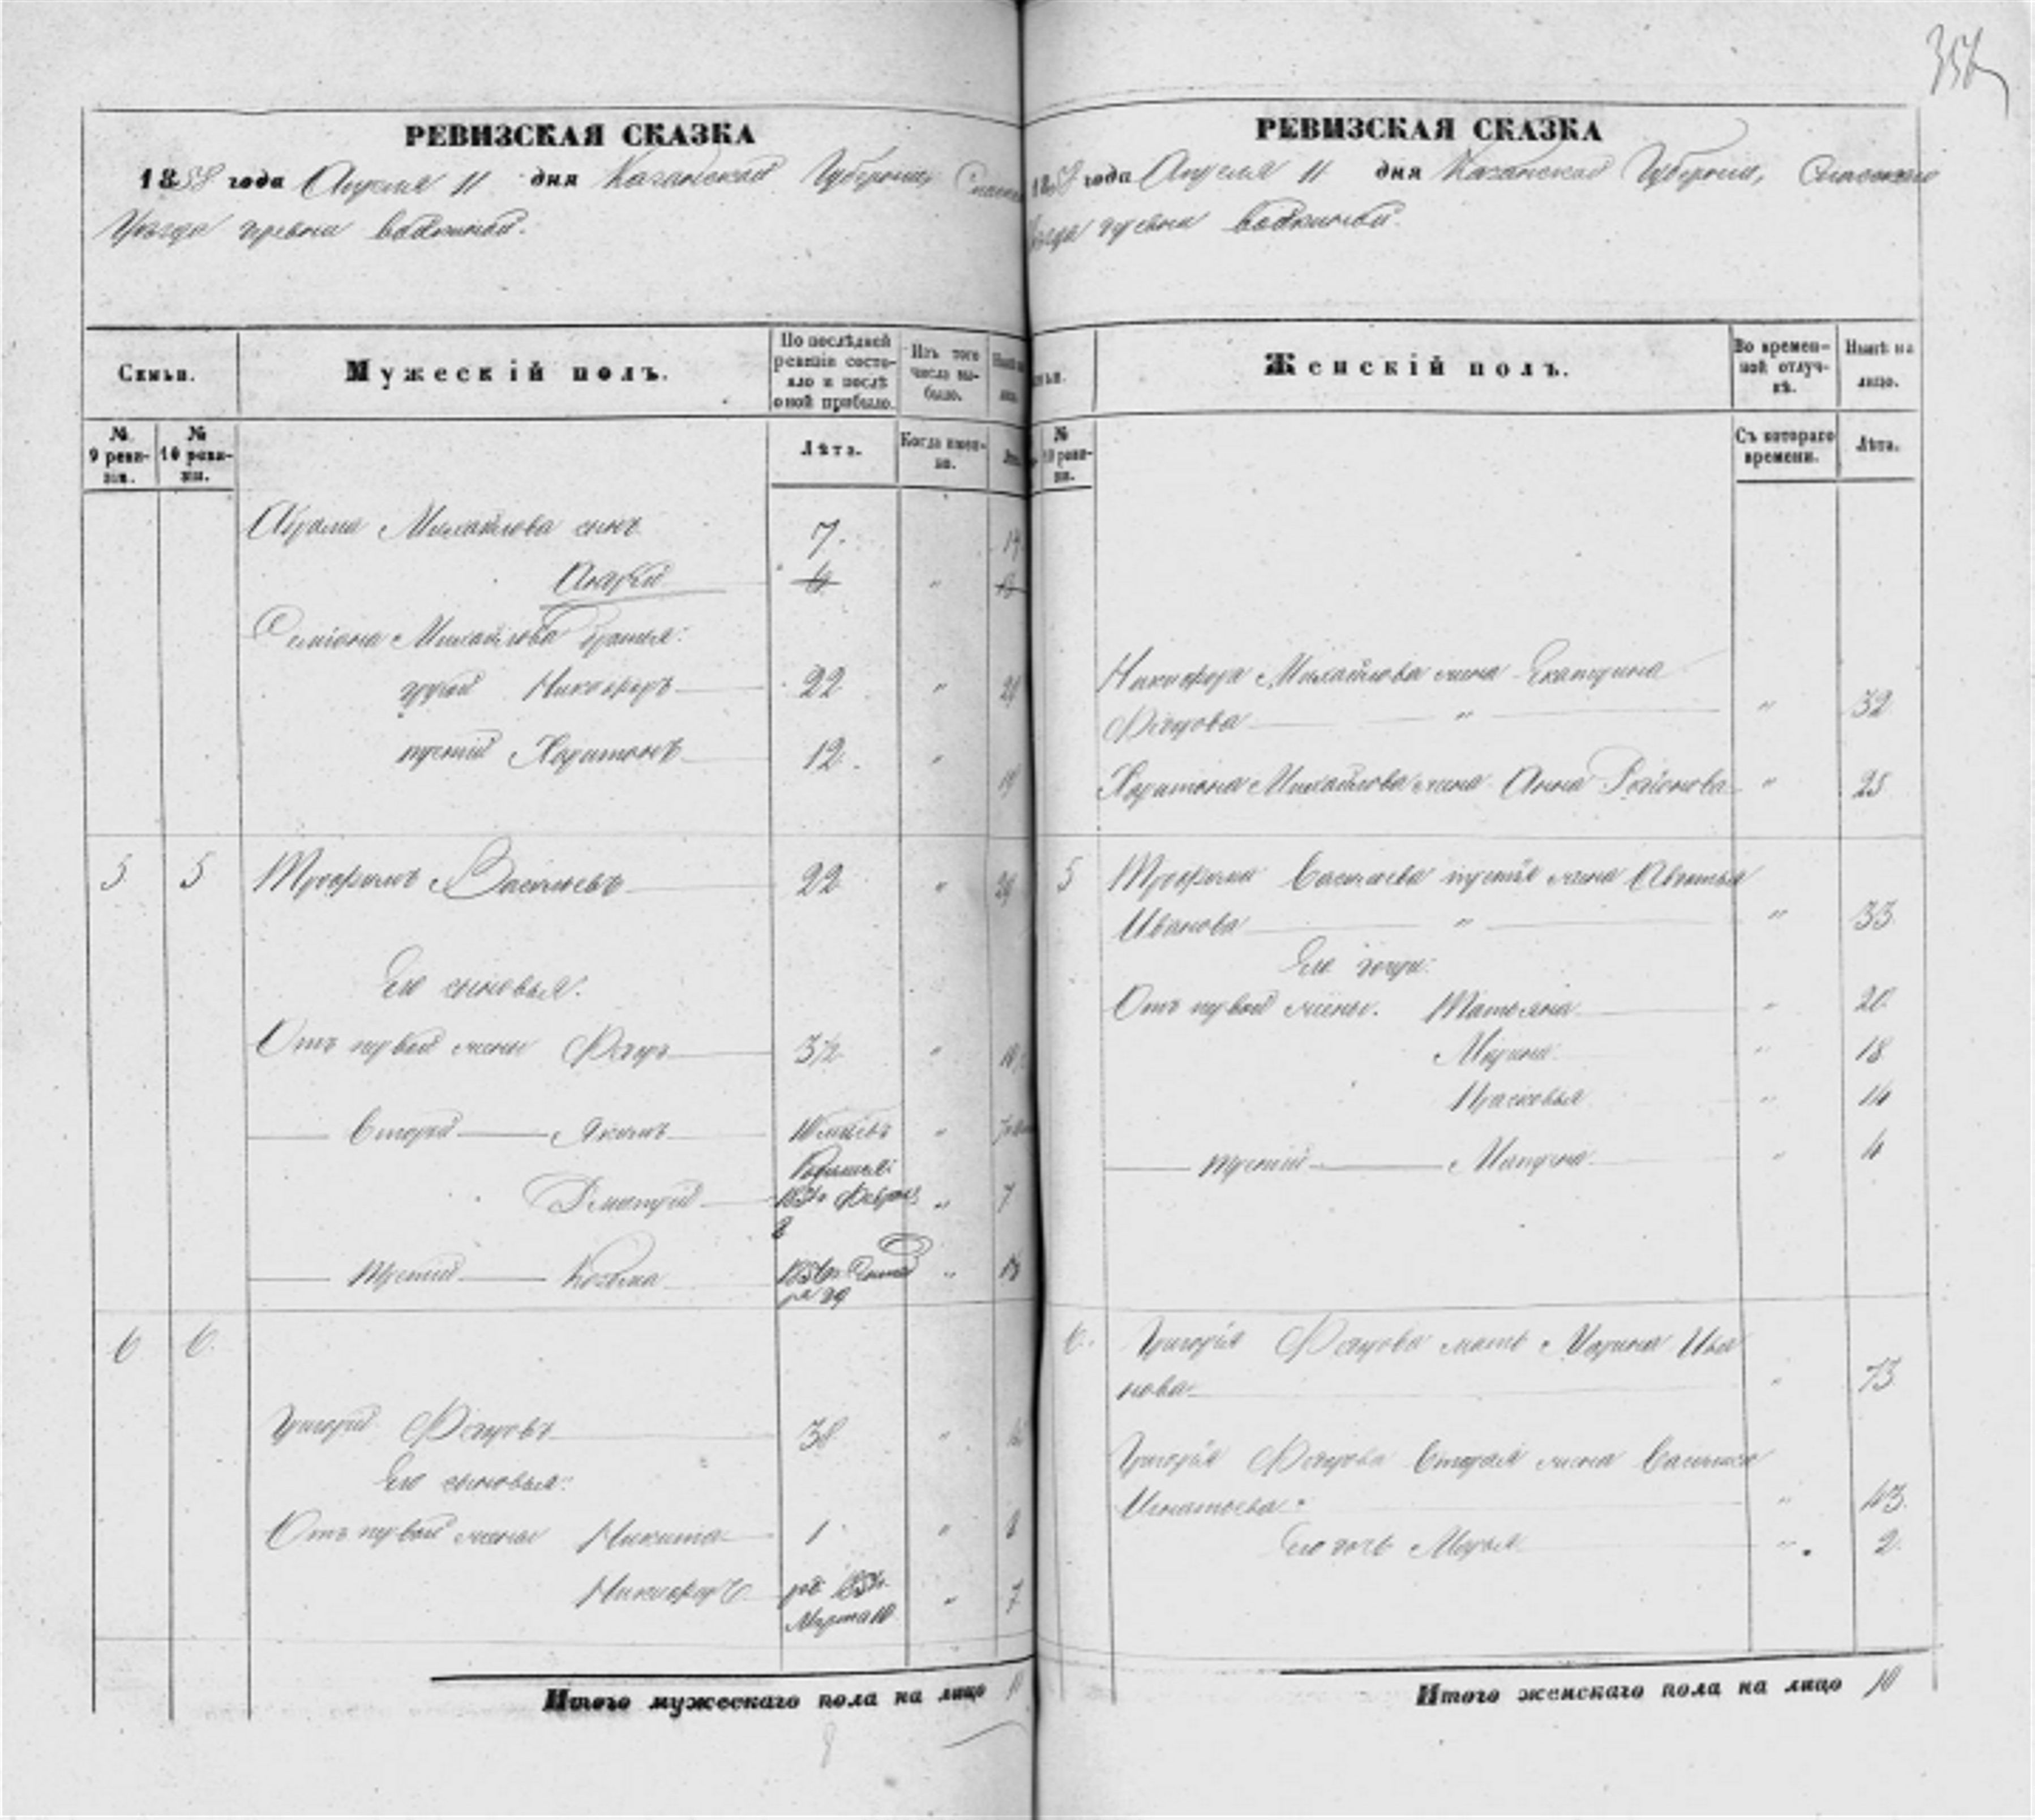 РЕВИЗСКАЯ СКАЗКА
1858 года Апреля 11 дня Казанской Губернии, Спасскаго
Уѣзда деревни
Семьи.
Мужескій полъ.
По послѣдней ревизіи состояло и послѣ оной прибыло.
Изъ того числа выбыло.
№ 9 ревизіи.
№ 10 ревизіи.
Лѣта.
Когда именно.
Абрама Михайлова сынъ 7.
Андрей 6 "
Семіона Михайлова братья:
другой Никифоръ 22 "
третій Харитонъ 12. " 19
5 5 Трофимъ Васильевъ 22 " 29
Его сыновья:
Отъ первой жены Федоръ 3½ "
Второй Якимъ "
Родился
Дмитрій 1851 Февраля 8 " 7
Третій Козьма "
6 6.
Григорій Федоровъ 38 "
Его сыновья:
Отъ первой жены Никита 1 " 8
Никифоръ Марта 10 " 7
Итого мужескаго пола на лицо
356
РЕВИЗСКАЯ СКАЗКА
1858 года Апреля 11 дня Казанской Губерніи, Спасскаго
Уѣзда деревни
Женскій полъ.
Во временной отлучкѣ.
Нынѣ на лицо.
№ 10 ревизіи.
Съ котораго времени.
Лѣта.
Никифора Михайлова жена Екатерина
Федорова " " 32
Харитона Михайлова жена Анна Родіонова " 25
5 Трофима Васильева третья жена Авдотья
Иванова " " 33.
Его дочери:
Отъ первой жены. Татьяна " 20.
Марина " 18
Прасковья " 14
Третьей " 4
6. Григорія Федорова мать Марина Ива
нова " 73
Григорія Федорова Вторая жена Василиса
Игнатьева " 43.
Его дочь Марья " 2.
Итого женскаго пола на лицо 10